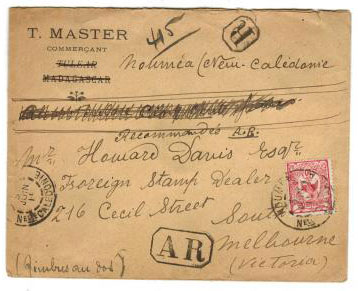 T. MASTER
COMMERÇANT
TULEAR
MADAGASCAR
415
R
Nouméa (New-Calédonie
Recommandés A.R.
Mr Howard Davis Esqre
Foreign Stamp Dealer
216 Cecil Street South
Melbourne
(Victoria)
AR
(Timbres au dos)